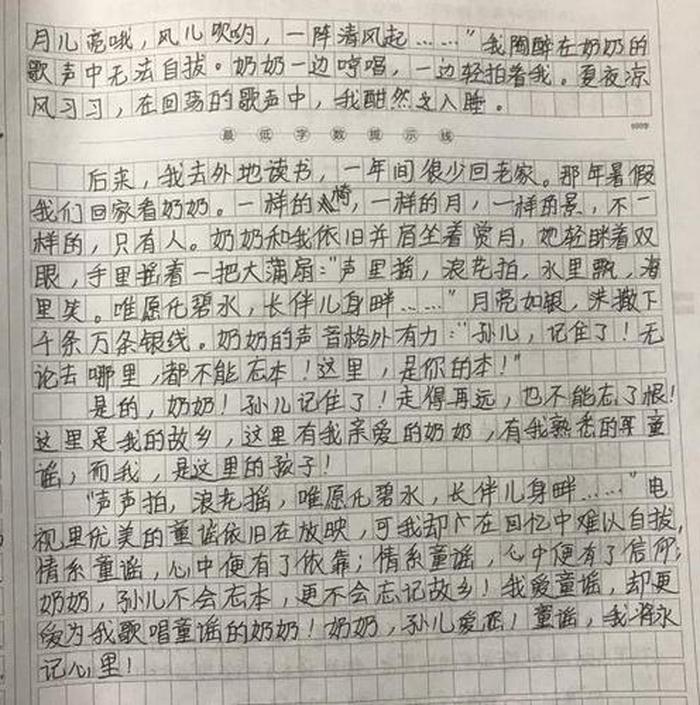 月儿亮哦，风儿吹哟，一阵清风起……”我陶醉在奶奶的
歌声中无法自拔。奶奶一边哼唱，一边轻拍着我。夏夜凉
风习习，在回荡的歌声中，我酣然之入睡。
最低字数提示线
后来，我去外地读书，一年间很少回老家。那年暑假
我们回家看奶奶。一样的椅，一样的月，一样的景，不一
样的，只有人。奶奶和我依旧并肩坐着赏月，她轻眯着双
眼，手里摇着一把大蒲扇：“声里摇，浪花拍，水里飘，海
里笑。唯愿化碧水，长伴儿身畔……”月亮如银，洒下
千条万条银线。奶奶的声音格外有力：“孙儿，记住了！无
论去哪里，都不能忘本！这里，是你的本！”
是的，奶奶！孙儿记住了！走得再远，也不能忘了根！
这里是我的故乡，这里有我亲爱的奶奶，有我熟悉的童
谣，而我，是这里的孩子！
“声声拍，浪花摇，唯愿化碧水，长伴儿身畔……”电
视里优美的童谣依旧在放映，可我却在回忆中难以自拔，
情系童谣，心中便有了依靠；情系童谣，心中便有了信仰；
奶奶，孙儿不会忘本，更不会忘记故乡！我爱童谣，却更
爱为我歌唱童谣的奶奶！奶奶，孙儿爱您！童谣，我将永
记心里！